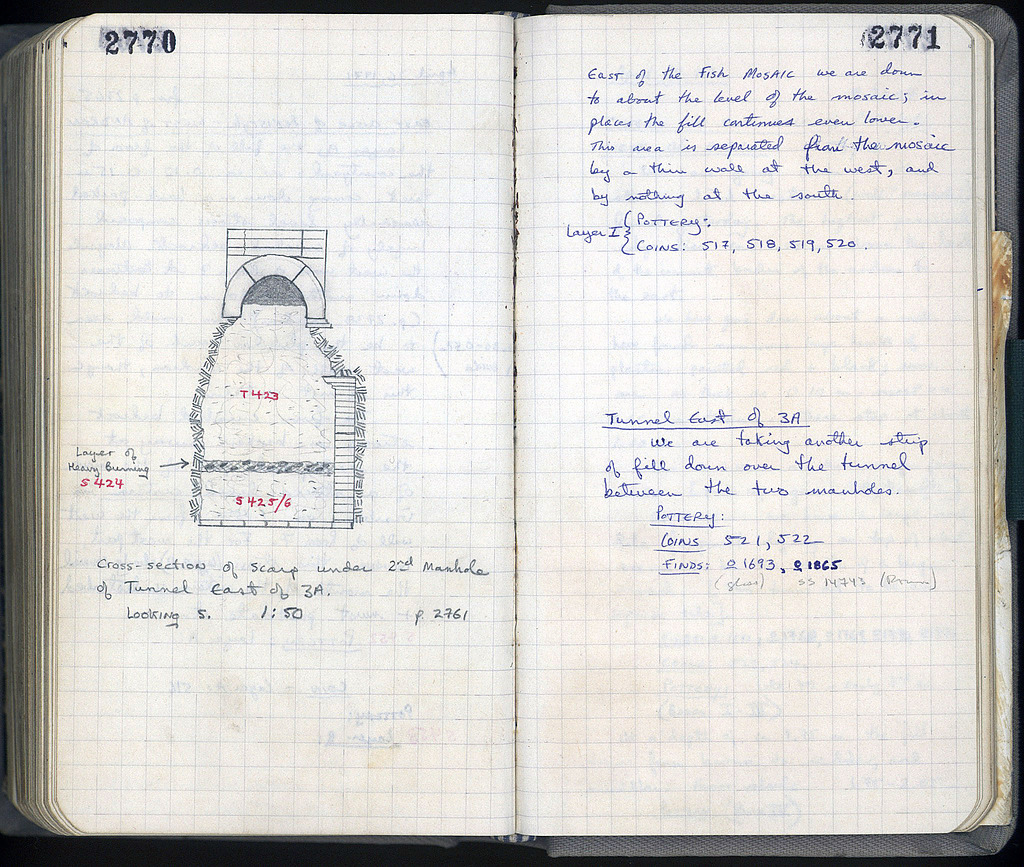 2770
T 423
Layer of
Heavy Burning
S 424
S 425/6
Cross-section of Scarp under 2nd Manhole
of Tunnel East of 3A.
Looking S. 1:50 p. 2761
2771
East of the Fish Mosaic we are down
to about the level of the mosaic; in
places the fill continues even lower.
This area is separated from the mosaic
by a thin wall at the west, and
by nothing at the south.
Layer I { Pottery:
Coins: 517, 518, 519, 520.
Tunnel East of 3A
We are taking another strip
of fill down over the tunnel
between the two manholes.
Pottery:
Coins 521, 522
Finds: O 1693, O 1865
(glass) SS 14743